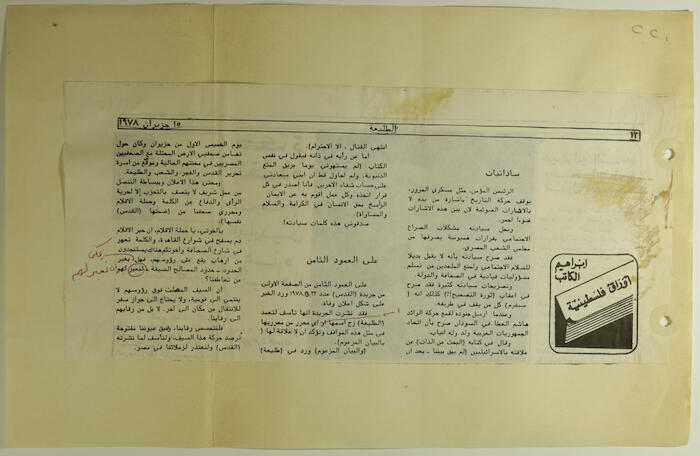 ١٥ حزيران ١٩٧٨
الطليعة
١٣
ساداتيات
الرئيس المؤمن، مثل عسكري المرور،
يوقف حركة التاريخ باشارة من يده لا
بالاشارات الضوئية لان بين هذه الاشارات
ضوءا احمر.
ويحل سيادته مشكلات الصراع
الاجتماعي بقرارات همبونية يصرفها من
مجلس الشعب المصري.
فقد صرح سيادته بأنه لا يقبل بديلا
للسلام الاجتماعي ولمنع الملحدين من تسلم
مسؤوليات قيادية في الصحافة والدولة.
وتصريحات سيادته كثيرة فقد صرح
في اعقاب (ثورة التصحيح!!) كذلك انه (
سيفرم) كل من يقف في طريقه.
وعندما ارسل جنوده لقمع حركة الرائد
هاشم العطا في السودان صرح بأن اتحاد
الجمهوريات العربية ولد وله انياب.
وقال في كتابه (البحث عن الذات) عن
علاقته بالاسرائيليين (لم يبق بيننا ـ بعد ان
انتهى القتال ـ الا الاحترام).
اما عن رأيه في ذاته فيقول في نفس
الكتاب، (لم يستهوني يوما بريق المتع
الدنيوية، ولم احاول قط ان ابني سعادتي
على حساب شقاء الآخرين. فأنا اصدر في كل
قرار اتخذه وكل عمل اقوم به عن الايمان
الراسخ بحق الانسان في الكرامة والسلام
والمساواة).
صدقوني هذه كلمات سيادته!
على العمود الثامن
على العمود الثامن من الصفحة الاولى
من جريدة (القدس) عدد ورد الخبر
على شكل اعلان وفاة.
فقد نشرت الجريدة انها تأسف لتعمد
(الطليعة) زج اسمها او اي محرر من محرريها
في مثل هذه المواقف وتؤكد ان لا علاقة لها (
بالبيان المزعوم).
(والبيان المزعوم) ورد في (طليعة)
يوم الخميس الاول من حزيران وكان حول
تضامن صحفيي الارض المحتلة مع الصحفيين
المصريين في محنتهم الحالية وموقع من اسرة
تحرير القدس والفجر والشعب والطليعة.
ومعنى هذا الاعلان وببساطة التنصل
من عمل شريف لا يتصف بالتحزب إلا لحرية
الرأي والدفاع عن الكلمة وحملة الاقلام
ومحرري صحفنا من (ضمنها (القدس)
نفسها).
يا اخوتي، يا حملة الاقلام، ان حبر الاقلام
دم يسفح في شوارع القاهرة، والكلمة تقهر
في شارع الصحافة واخوتكم هناك يستنجدون
من ارهاب يقع على رؤوسهم، فهل يغير
الحدود ـ حدود المصالح الضيقة لهم
من تعاطفنا؟
ان السيف المصلت فوق رؤوسهم لا
ينتمي الى قومية، ولا يحتاج الى جواز سفر
للانتقال من مكان الى آخر. لا بل من رقابهم
الى رقابنا.
فلنتحسس رقابنا، ولنبق عيوننا مفتوحة
ترصد حركة هذا السيف، ولنأسف لما نشرته
(القدس) ولنعتذر لزملائنا في مصر.
ابراهيم
الكاتب
اوراق فلسطينية